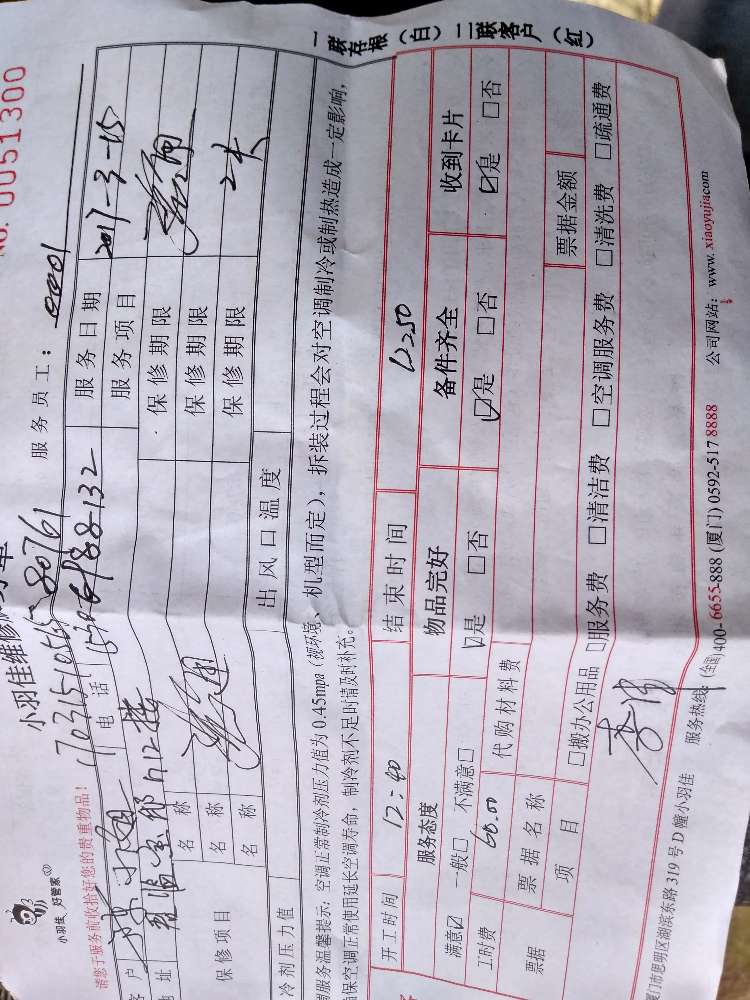 一联存根（白）二联客户（红）
NO. 0051300
小羽佳 好管家
小羽佳维修
1703151051580761
服务员工：0001
请您于服务前收拾好您的贵重物品！
客户
电话
服务日期 2017-3-15
地址
服务项目
保修项目
名称
保修期限
名称
保修期限
名称
保修期限 2天
冷剂压力值
出风口温度
调服务温馨提示：空调正常制冷剂压力值为0.45mpa（视环境、机型而定），拆装过程会对空调制冷或制热造成一定影响，
确保空调正常使用延长空调寿命，制冷剂不足时请及时补充。
开工时间 12:40
结束时间 12:50
服务态度
物品完好
备件齐全
收到卡片
满意☑ 一般□ 不满意□
☑是 □否
☑是 □否
☑是 □否
工时费 60.00
代购材料费
票据
票据名称
票据金额
项目
□搬办公用品 □服务费 □清洁费 □空调服务费 □清洗费 □疏通费
厦门市思明区湖滨东路319号D幢小羽佳
服务热线：(全国)400-6655-888 (厦门) 0592-517 8888
公司网站：www.xiaoyujia.com